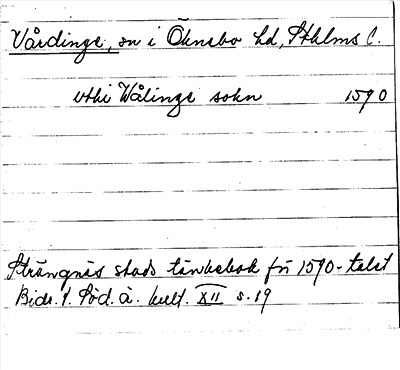 Vårdinge, sn i Öknebo hd, Sthlms l.
uthi Wålinge sokn 1590
Strängnäs stads tänkebok för 1590-talet
Bidr. t. Söd. ä. kult. XII s. 19